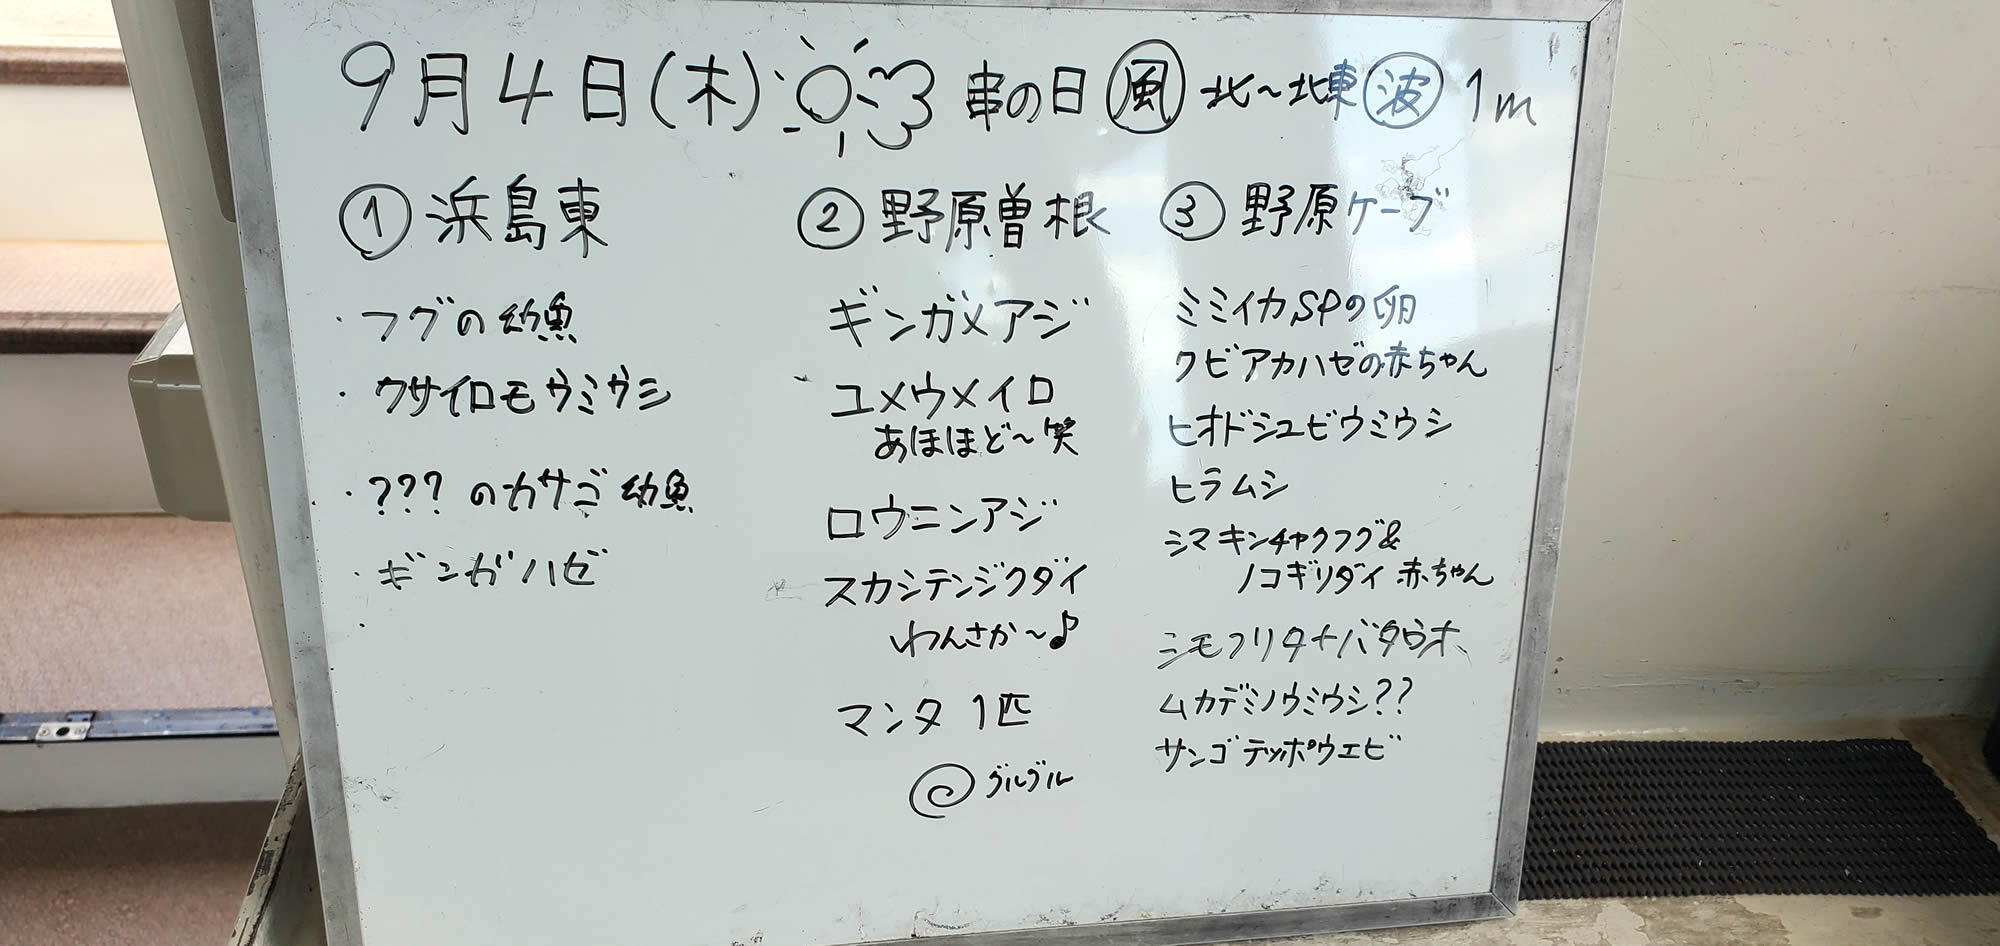 9月4日(木) 串の日 風 北～北東 波 1m
① 浜島東
・フグの幼魚
・ウサイロモウミウシ
・???のカサゴ幼魚
・ギンガハゼ
・
② 野原曽根
ギンガメアジ
ユメウメイロ
あほほど～笑
ロウニンアジ
スカシテンジクダイ
わんさか～♪
マンタ 1匹
グルグル
③ 野原ケーブ
ミミイカSPの卵
クビアカハゼの赤ちゃん
ヒオドシユビウミウシ
ヒラムシ
シマキンチャクフグ&
ノコギリダイ 赤ちゃん
シモフリタナバタウオ
ムカデミノウミウシ??
サンゴテッポウエビ